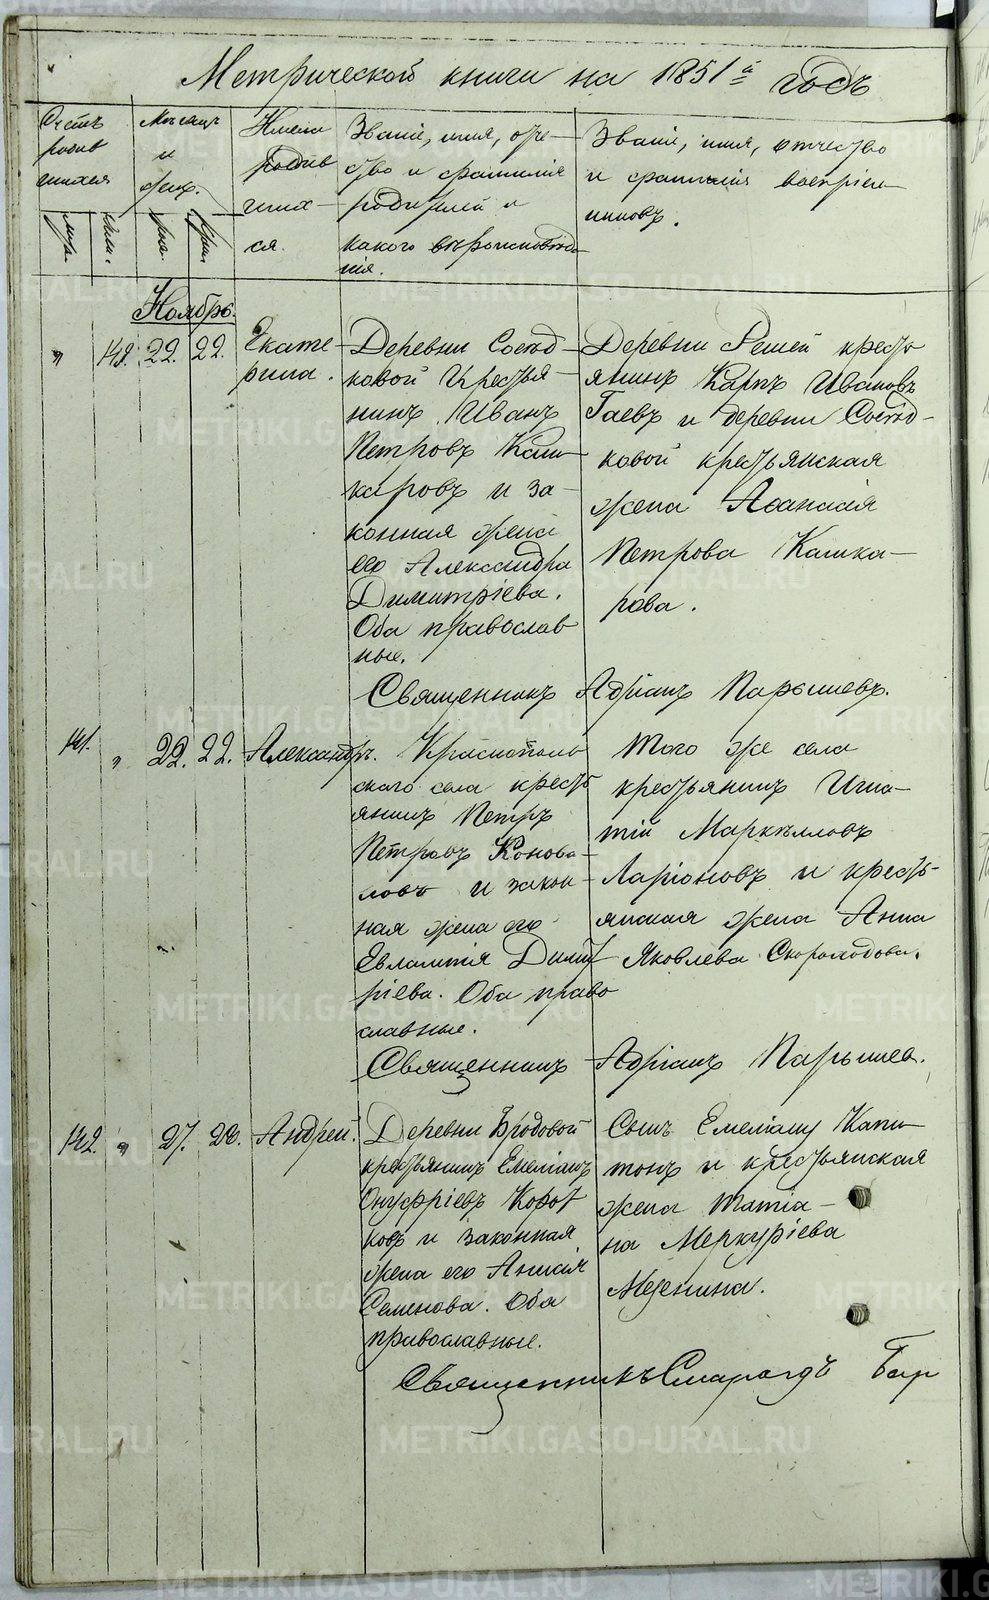 Метрической книги на 1851й годъ
Счетъ родив шихся
Мѣсяцъ и день.
Имена родив шихся.
Званіе, имя, оче- ство и фамилія родителей и какого вѣроисповѣда нія.
Званіе, имя, отчество и фамилія воспріем- никовъ.
муж. жен. рож. крещ.
Ноябрь.
" 148. 22. 22. Екате- рина.
Деревни Сосѣд-
ковой Крестья-
нинъ Иванъ
Петровъ Каш-
каровъ и за-
конная жена
его Александра
Димитріева.
Оба православ
ные.
Деревни Решей кресть
янинъ Карпъ Ивановъ
Гаевъ и деревни Сосѣд-
ковой крестьянская
жена Афанасія
Петрова Кашка-
рова.
Священникъ Адріанъ Парышевъ.
141. " 22. 22. Александръ.
Краснополь
скаго села кресть
янинъ Петръ
Петровъ Конова-
ловъ и закон-
ная жена его
Евлампія Димит
ріева. Оба право
славные.
Того же села
крестьянинъ Игна-
тій Маркелловъ
Ларіоновъ и кресть-
янская жена Анна
Яковлева Скороходова.
Священникъ Адріанъ Парышев.
142. " 27. 28. Андрей.
Деревни Бродовой
крестьянинъ Емеліанъ
Онуфріевъ Корот
ковъ и законная
жена его Анисія
Семенова. Оба
православные.
Сынъ Емеліану Капи-
тонъ и крестьянская
жена Татіа-
на Меркуріева
Мезенина.
Священникъ Смарагдъ Бир
METRIKI.GASO-URAL.RU